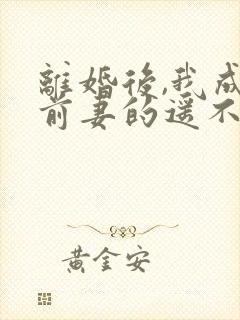 離婚後,我成
前妻的遥不
黃金安